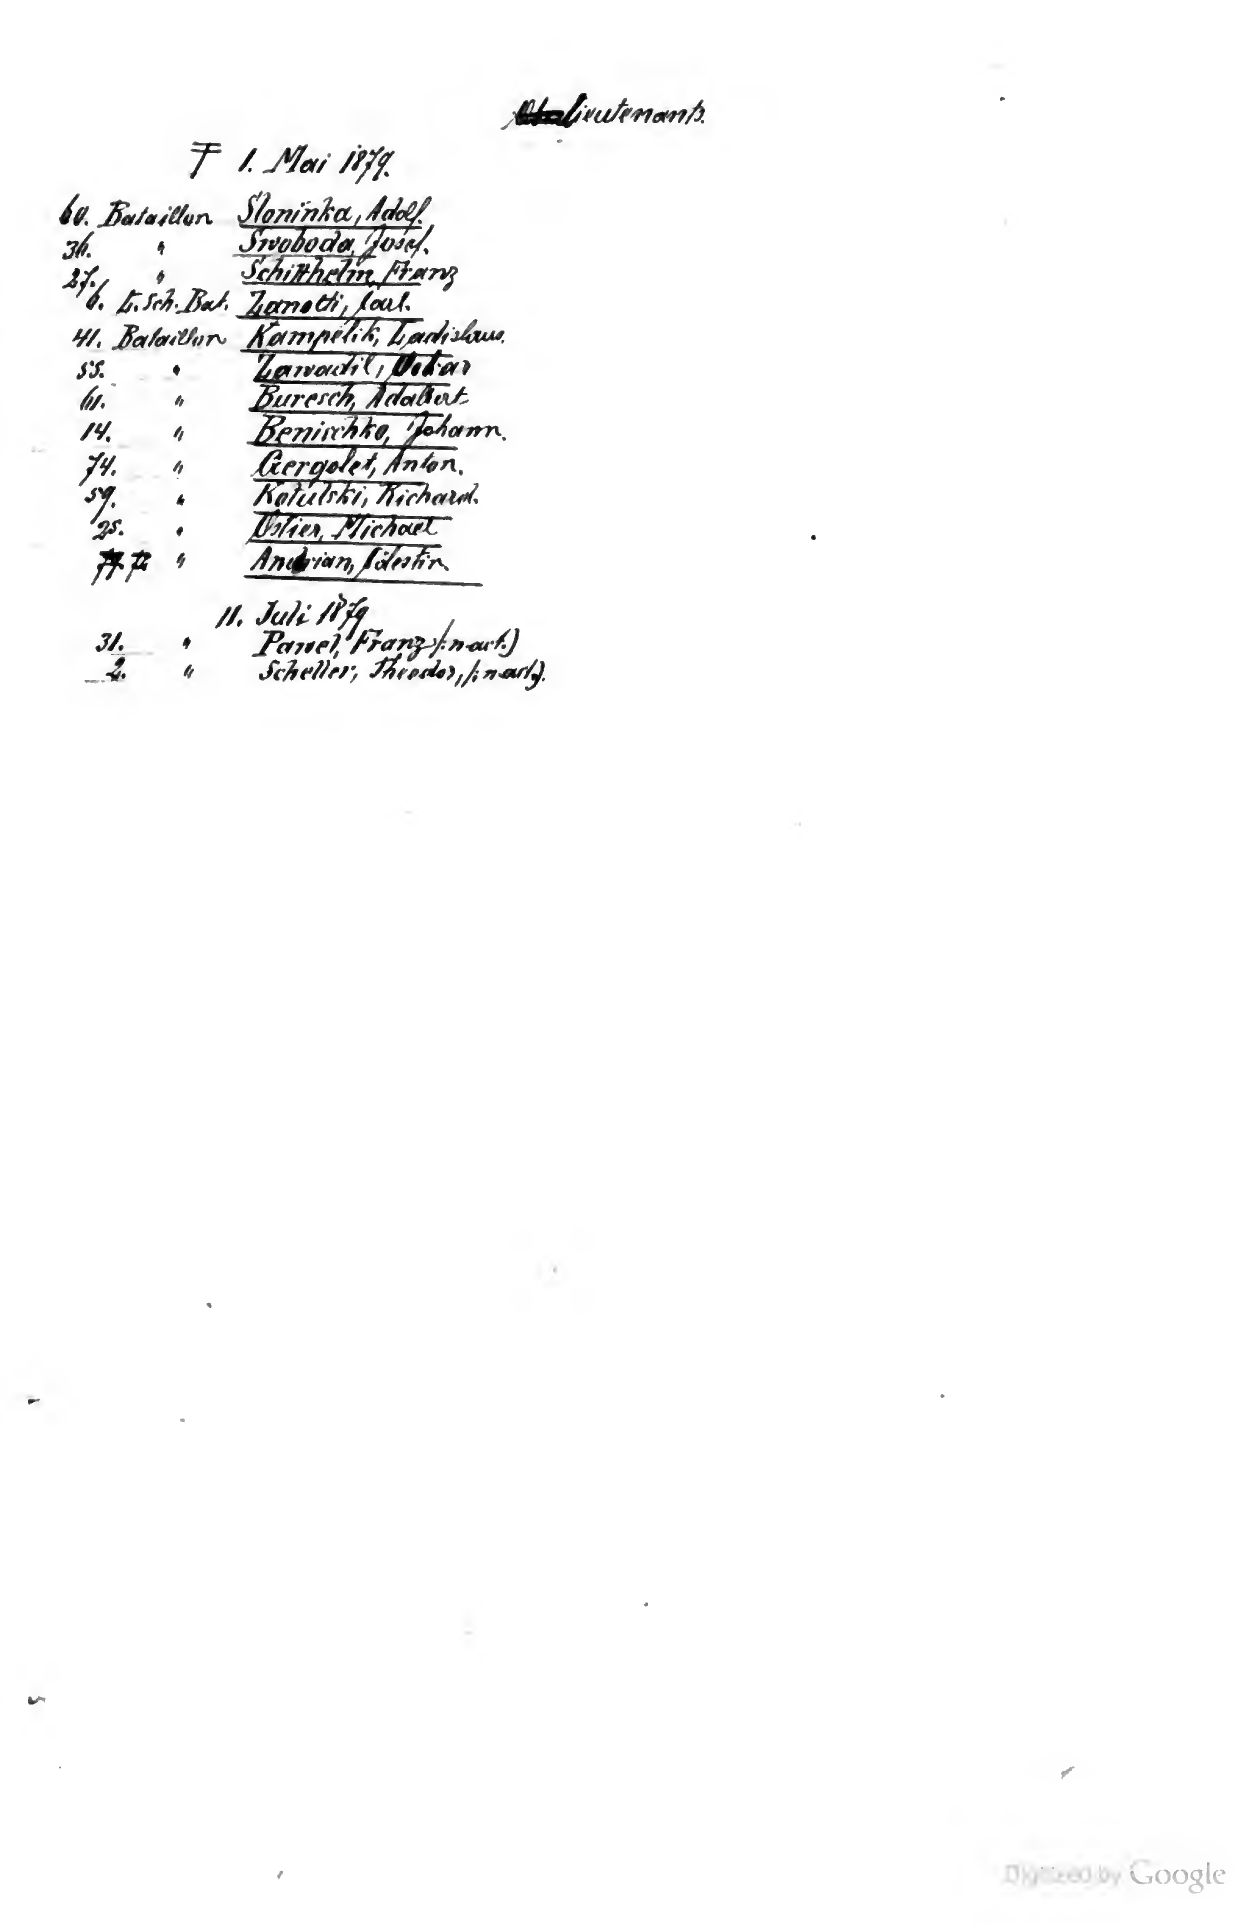 Lieutenants.
1. Mai 1879.
60. Bataillon Sloninka, Adolf.
36. " Swoboda, Josef.
27. " Schitthelm, Franz
6. L. Sch. Bat. Zanotti, Carl.
41. Bataillon Kampelik, Ladislaus.
55. " Zawadil, Oskar
61. " Buresch, Adalbert
14. " Benischko, Johann.
74. " Gergolet, Anton.
59. " Kotulski, Richard.
25. " Ostier, Michael
" Andrian, Cölestin
11. Juli 1879
31. " Pavel, Franz (: n. act.)
2. " Scheller, Theodor, (: n. act.).
Digitized by Google